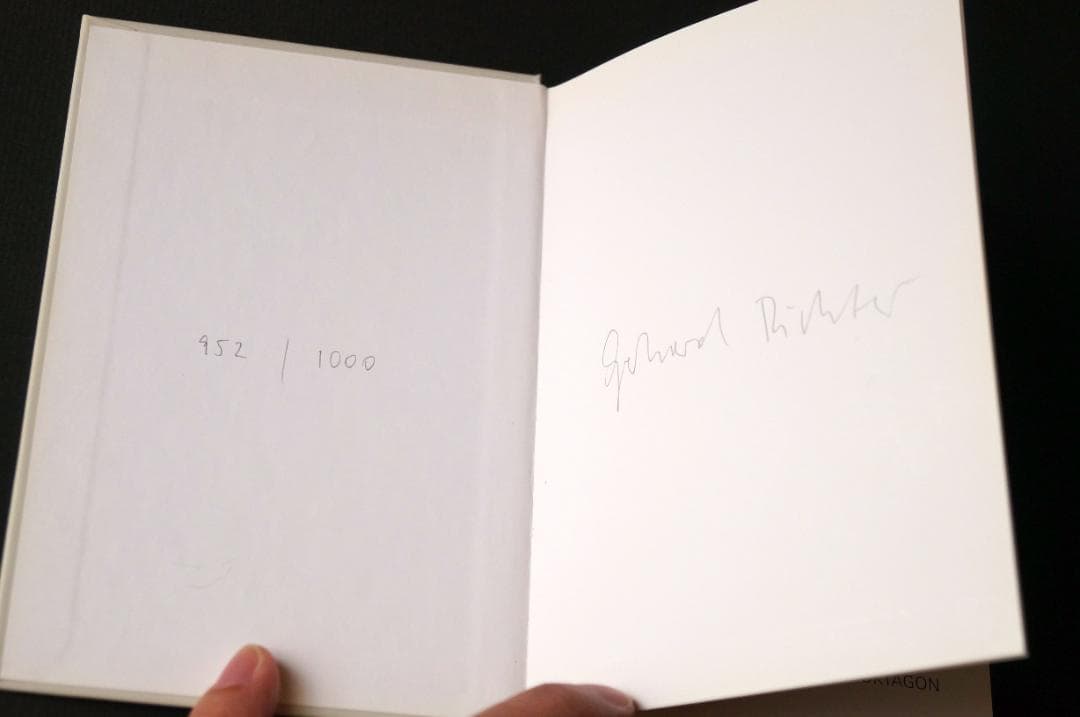 952 / 1000
Gerhard Richter